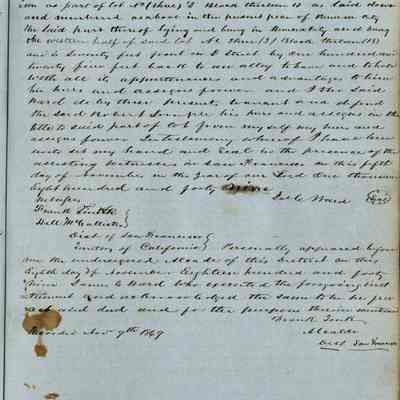 as part of lot No (three) 3 Block thirteen 13 as laid down
and numbered as above in the present plan of
the said part thereof lying and being in
the western half of said lot No three (3) Block thirteen (13)
and is twenty five feet on I Street by one hundred and
twenty five feet back to an alley to have and to hold
with all its appurtenances and advantages to him
his heirs and assigns forever and I the said
Ward do by these presents warrant and defend
the said Robert his heirs and assigns in the
title to said part of lot from my self my heirs and
assigns forever In testimony whereof I have here
unto set my hand and Seal in the presence of the
attesting witnesses in San Francisco on this fifth
day of November in the year of our Lord One thousand
Eight hundred and forty Nine
Ja C Ward
Frank Turk
Hall McCallister
Dist of San Francisco
Territory of California Personally appeared before
me the undersigned Alcade of this District on this
Eighth day of November Eighteen hundred and forty
Nine James C Ward who executed the foregoing inst
rument and acknowledged the same to be his free
act and deed and for the purposes therein
Frank Turk
Recorded Nov 9th 1849
Alcalde
Dist San Francisco